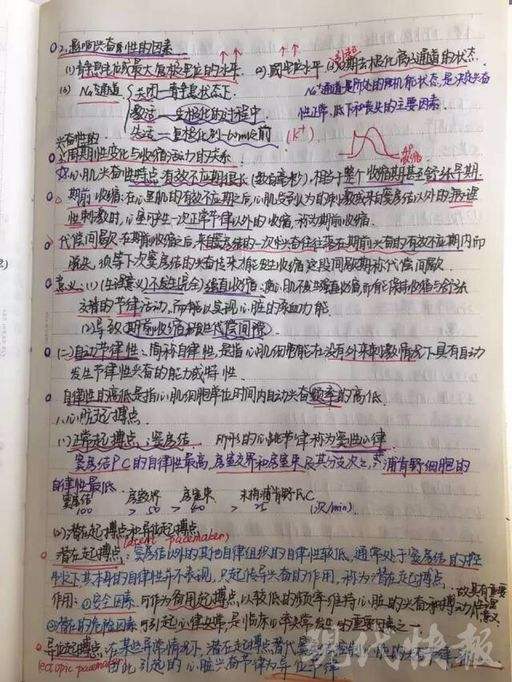 2.影响兴奋性的因素
(1)静息电位或最大复极电位的水平 ↑↑ (2)阈电位水平 ↑↑ (3)引起0期去极化的离子通道的状态.
(3) Na⁺通道 关闭—静息状态下. Na⁺通道是所处的机能状态,是决定兴奋
激活—去极化的过程中. 性正常、低下和丧失的主要因素.
失活—复极化到-60mv前 (K⁺)
兴奋性的
周期性变化与收缩活动的关系.
心肌兴奋性特点:有效不应期很长(数百毫秒),相当于整个收缩期甚至舒张早期.
期前收缩:在心室肌的有效不应期之后,心肌受到人为的刺激或来自窦房结以外的病理
性刺激时,心室可产生一次正常节律以外的收缩,称为期前收缩.
代偿间歇.在期前收缩之后,来自窦房结的一次兴奋往往落在期前兴奋的有效不应期内而
消失,须等下次窦房结的兴奋传来才能发生收缩,这段间歇期称代偿间歇.
意义:(1)(生理意义)不发生(完全)强直收缩:使心肌不发生强直收缩而能保持收缩与舒张
交替的节律活动,而能以实现心脏的泵血功能.
(2)导致期前收缩或出代偿间隙.
(二)自动节律性:简称自律性,是指心肌细胞能在没有外来刺激情况下具有自动
发生节律性兴奋的能力或特性.
自律性的高低是指心肌细胞单位时间内自动兴奋频率的高低.
1.心脏起搏点.
(1)正常起搏点:窦房结 所形的心跳节律称为窦性心律
窦房结PC的自律性最高,房室交界和房室束及其分支次之,浦肯野细胞的
自律性最低.
窦房结 房室交界 房室束 末梢浦肯野F.C
100 > 50 > 40 > 25 (次/min).
(2)潜在起搏点和异位起搏点
(latent pacemaker)
潜在起搏点:窦房结以外的其他自律组织的自律性较低,通常处于窦房结的控
制之下其本身的自律性并不表现,只起传导兴奋的作用,称为潜在起搏点.
作用:①安全因素.可作为备用起搏点,以较低的频率维持心脏的兴奋和搏动,故具有重要生理意义
②潜在的危险因素.可引起心律失常,是临床心律失常发生的重要因素之一.
异位起搏点:在某些异常情况下,潜在起搏点替代窦房结
ectopic pacemaker 由此引起的心脏兴奋节律为异位节律
现代快报